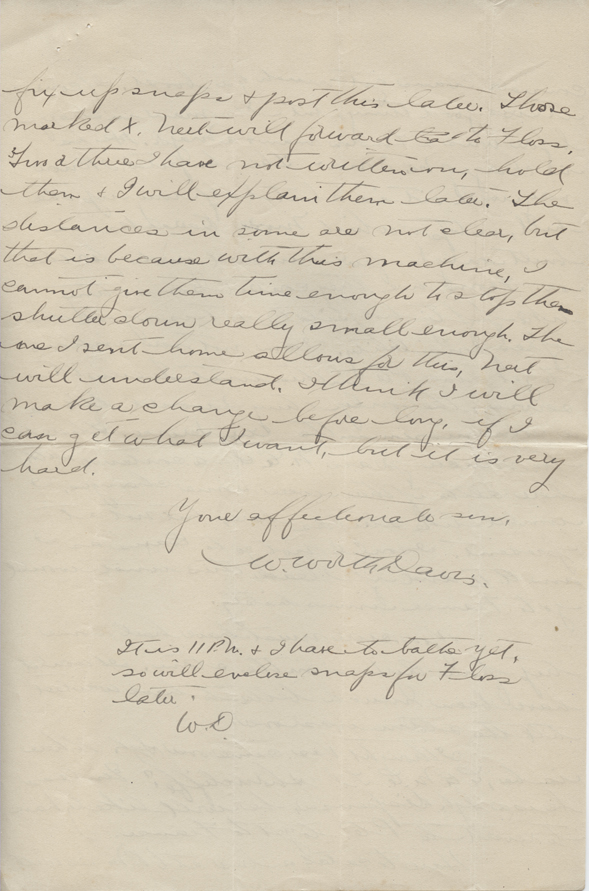 fix up snaps & post this later. Those
marked X. Nett will forward to Floss.
Two or three I have not written on, hold
them & I will explain them later. The
distances in some are not clear, but
that is because with this machine, I
cannot give them time enough to stop the
shutter down really small enough. The
one I sent home allows for this, Nett
will understand. I think I will
make a change before long, if I
can get what I want, but it is very
hard.
Your affectionate son,
W. Worth Davis.
It is 11 P.M. & I have to bathe yet,
so will enclose snaps for Floss
later.
W.D.